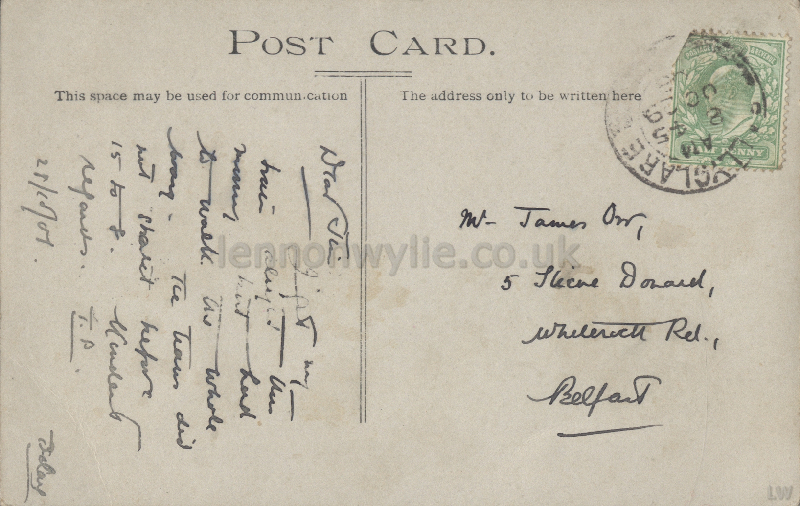 POST CARD.
This space may be used for communication
The address only to be written here
Dear Jim
I got my
train alright this
morning but had
to walk the whole
way. The trams did
not start before
15 to 8. Kindest
regards. T. P.
25/10/07.
Friday
Mr James Orr,
5 Slieve Donard,
Whiterock Rd.,
Belfast
BALLYCLARE
PENNY
lennonwylie.co.uk
LW